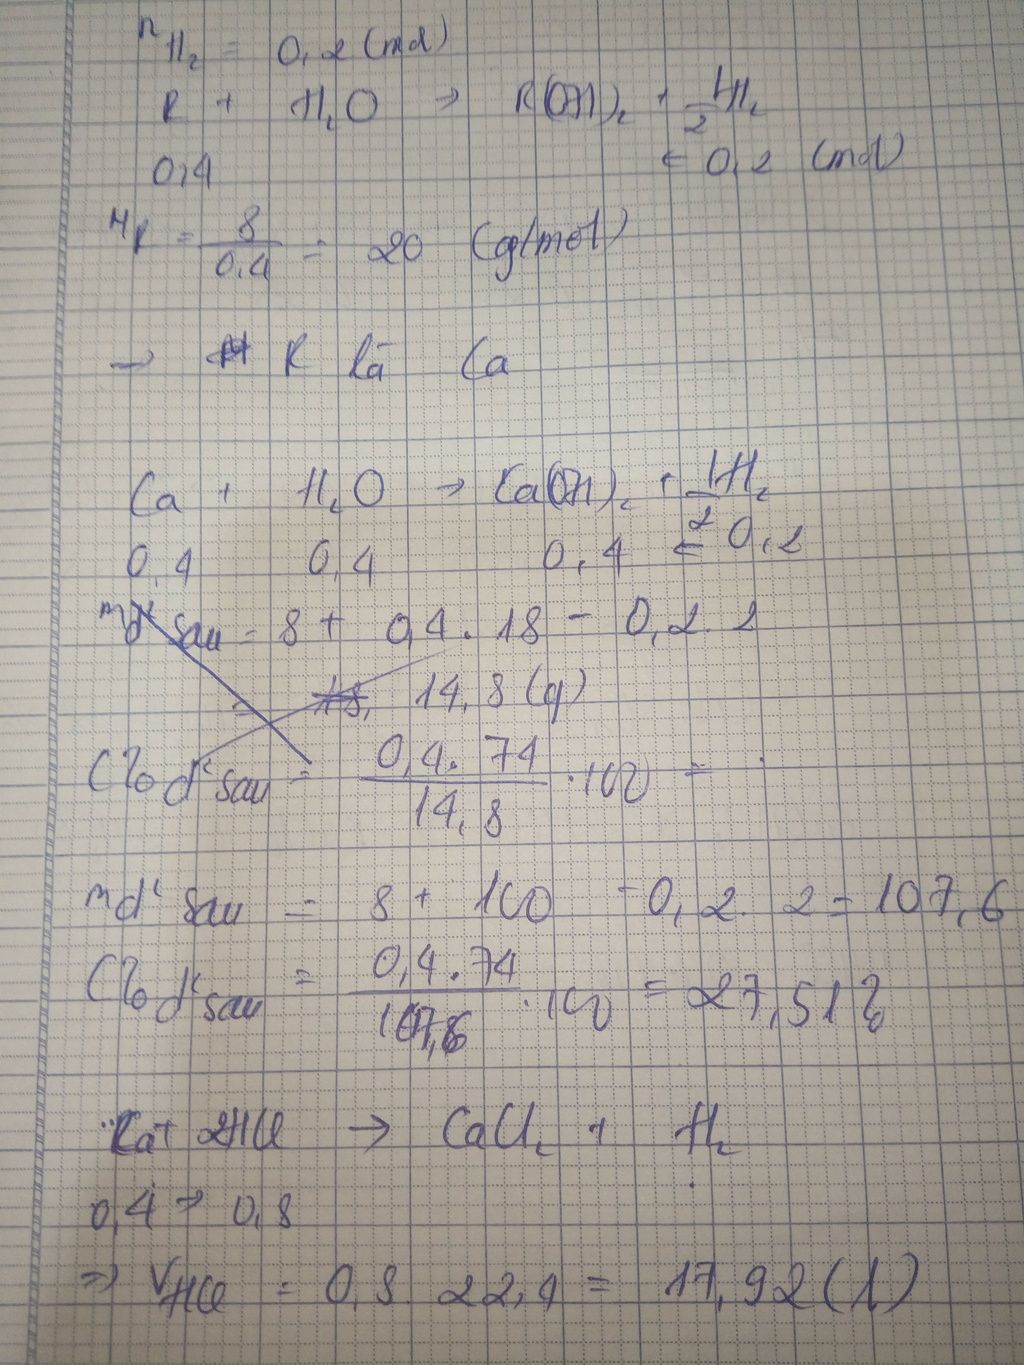 nH₂ = 0,2 (mol)
R + H₂O → R(OH)₂ + 1/2 H₂
0,4 ← 0,2 (mol)
MR = 8/0,4 = 20 (g/mol)
→ R là Ca
Ca + H₂O → Ca(OH)₂ + 1/2 H₂
0,4 0,4 0,4 ← 0,2
md² sau = 8 + 0,4 . 18 - 0,2 . 2
= 14,8 (g)
C% d² sau = 0,4 . 74/14,8 . 100 =
md² sau = 8 + 100 - 0,2 . 2 = 107,6
C% d² sau = 0,4 . 74/107,6 . 100 = 27,51%
Ca + 2HCl → CaCl₂ + H₂
0,4 → 0,8
=> VHCl = 0,8 . 22,4 = 17,92 (l)